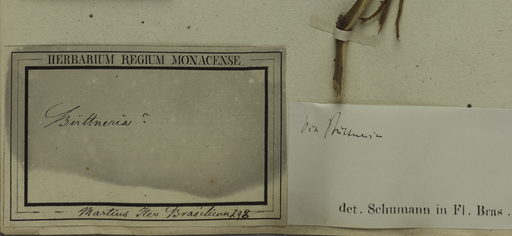 HERBARIUM REGIUM MONACENSE
Büttneria ?
Martius Iter Brasilicum 298
vix Büttneria
det. Schumann in Fl. Bras.